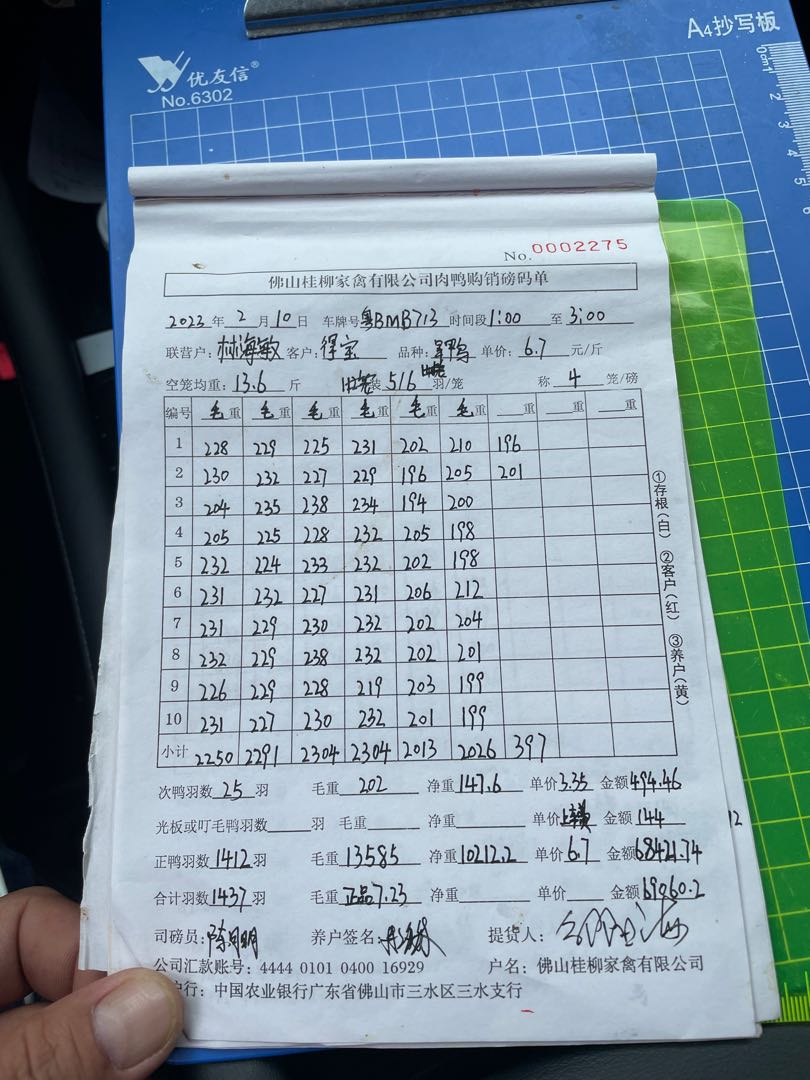 A4抄写板
优友信®
No.6302
0cm1 2 3 4 5 6
No. 0002275
佛山桂柳家禽有限公司肉鸭购销磅码单
2023年2月10日 车牌号粤BMB713 时间段1:00 至3:00
联营户:林海敏 客户:得宝 品种:鸭 单价:6.7元/斤
空笼均重:13.6斤 装516羽/笼 称4笼/磅
编号 毛重 毛重 毛重 毛重 毛重 毛重 重 重 重
1 228 229 225 231 202 210 196
2 230 232 227 229 196 205 201
3 204 235 238 234 194 200
4 205 225 228 232 205 198
5 232 224 233 232 202 198
6 231 232 227 231 206 212
7 231 229 230 232 202 204
8 232 229 238 232 202 201
9 226 229 228 219 203 199
10 231 227 230 232 201 199
小计 2250 2291 2304 2304 2013 2026 397
①存根(白) ②客户(红) ③养户(黄)
次鸭羽数25羽 毛重202 净重147.6 单价3.35 金额494.46
光板或叮毛鸭羽数 羽 毛重 净重 单价 金额144 12
正鸭羽数1412羽 毛重13585 净重10212.2 单价6.7 金额68421.74
合计羽数1437羽 毛重正品7.23 净重 单价 金额69060.2
司磅员: 养户签名: 提货人:
公司汇款账号:4444 0101 0400 16929 户名:佛山桂柳家禽有限公司
户行:中国农业银行广东省佛山市三水区三水支行